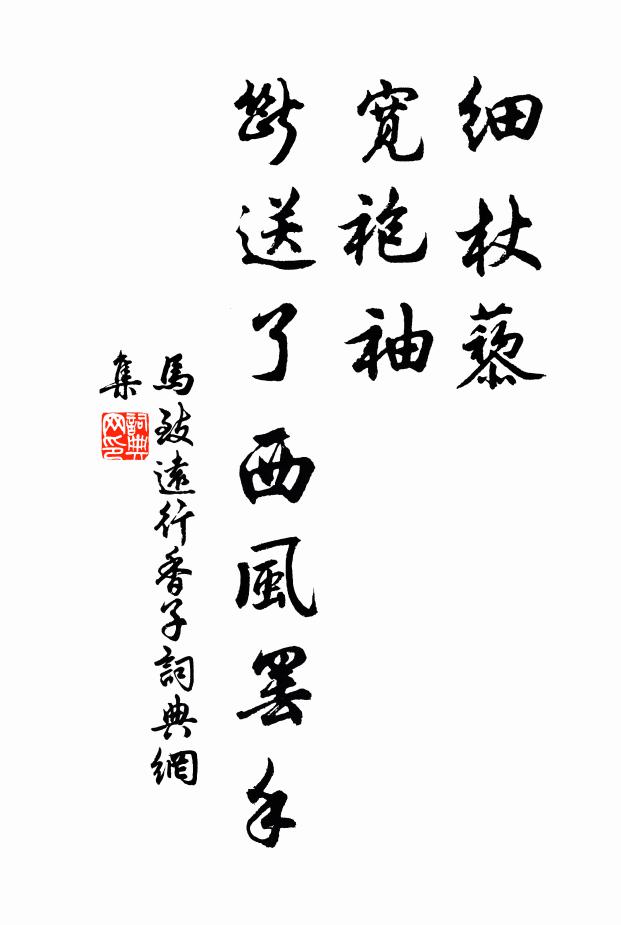 細杖藜
寬袍袖
斷送了西風罷手
馬致遠行香子詞典網
集
詞典
网印